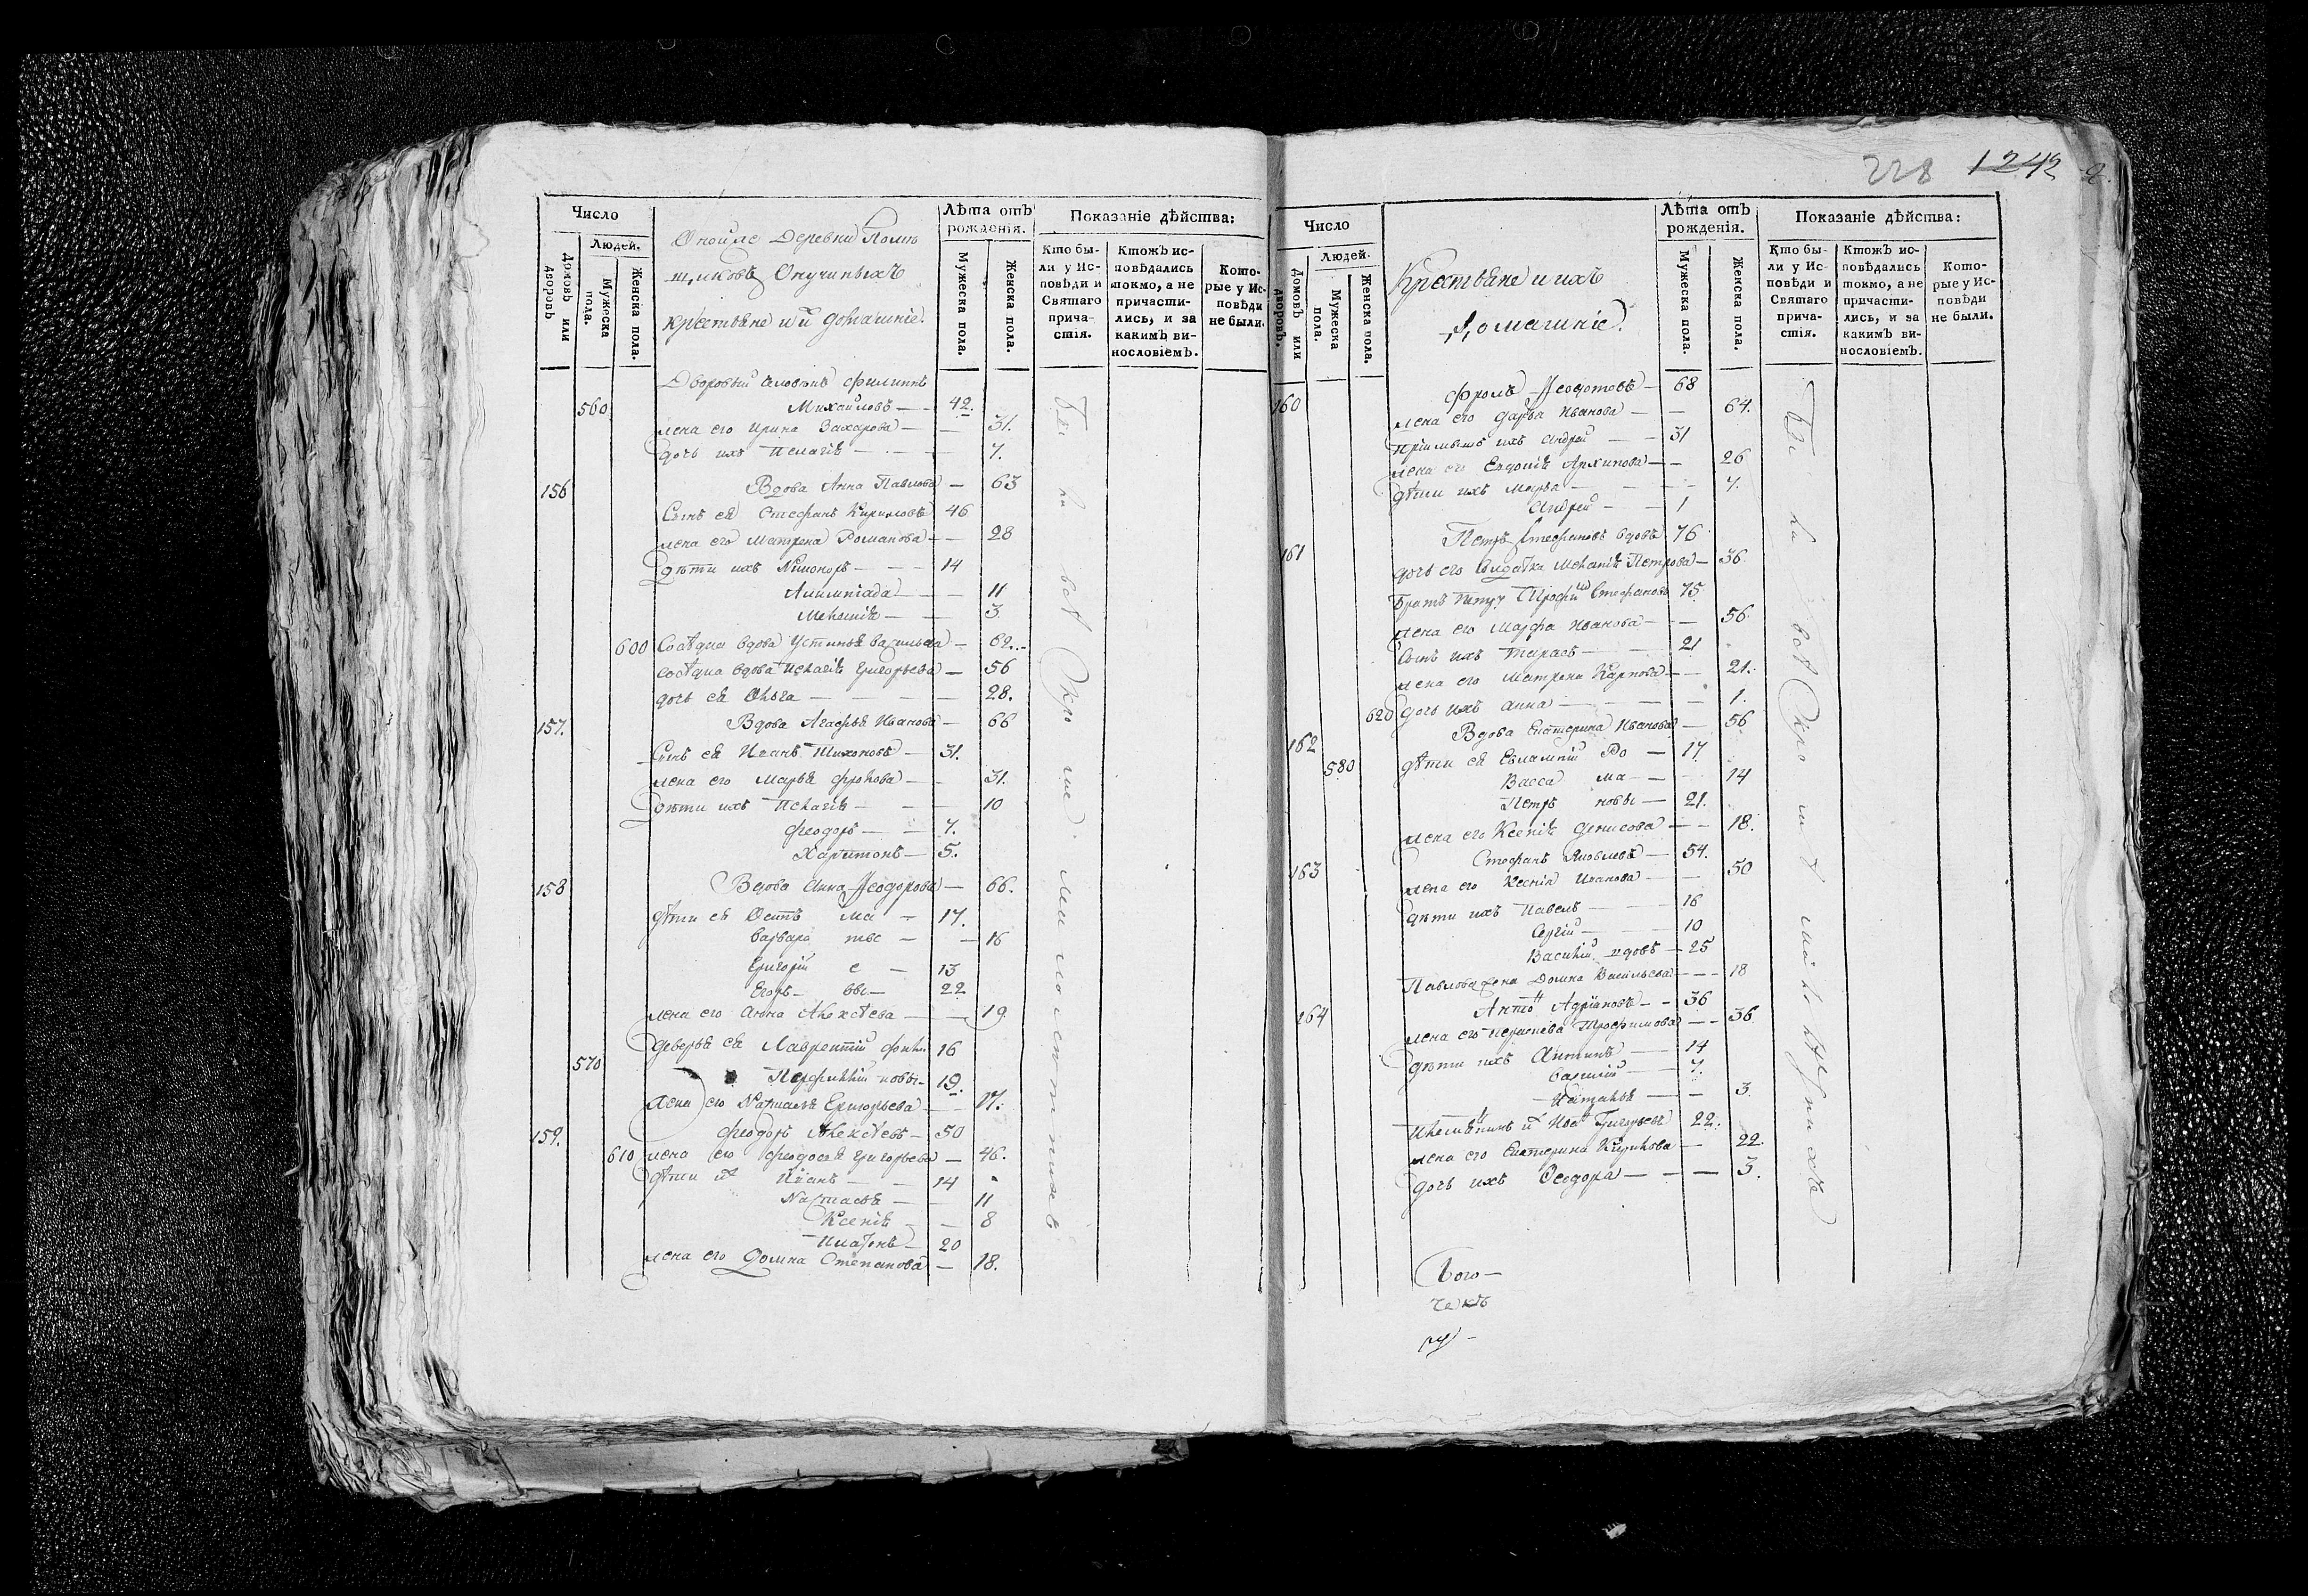 Число
Людей.
Домовъ или дворовъ
Мужеска пола.
Женска пола.
Оной же Деревни Помѣ
щиковъ Окучиныхъ
крестьяне и ихъ домашніе.
Лѣта отъ рожденія.
Мужеска пола.
Женска пола.
Показаніе дѣйства:
Кто были у Исповѣди и Святаго причастія.
Ктожъ исповѣдались токмо, а не причастились, и за какимъ винословіемъ.
Которые у Исповѣди не были.
Дворовый человѣкъ Филиппъ
560 Михайловъ — 42.
жена его Ирина Захарова — 31.
дочь ихъ Пелагія — 7.
156 Вдова Анна Павлова — 63
Сынъ ея Стефанъ Кириловъ 46
жена его Матрена Романова — 28
дѣти ихъ Никоноръ — 14
Алимпіада — 11
Меланія — 3.
600 Сосѣдка вдова Устинья Васильева — 62.
сосѣдка вдова Пелагія Григорьева — 56
дочь ея Ольга — 28.
157. Вдова Агафья Иванова — 66
Сынъ ея Иванъ Тихоновъ — 31.
жена его Марья Фролова — 31.
дѣти ихъ Пелагія — 10
Феодоръ — 7.
Харитонъ — 5.
158 Вдова Анна Феодорова — 66.
дѣти ея Осипъ ма — 17.
Варвара твѣ — 16
Григорій е — 13
Егоръ — вы — 22
жена его Анна Алексѣева — 19
деверья ея Лаврентій 16
570 Перфилій — 19.
жена его Наталья Григорьева — 17.
159. Феодоръ Алексѣевъ — 50
610 жена его Феодосья Григорьева — 46.
дѣти их Иванъ — 14
Настасья — 11
Ксенія — 8
Платонъ — 20
жена его Домна Степанова — 18.
Были всѣ
228 1242
Число
Людей.
Домовъ или дворовъ.
Мужеска пола.
Женска пола.
Крестьяне и ихъ
домашніе.
Лѣта отъ рожденія.
Мужеска пола.
Женска пола.
Показаніе дѣйства:
Кто были у Исповѣди и Святаго причастія.
Ктожъ исповѣдались токмо, а не причастились, и за какимъ винословіемъ.
Которые у Исповѣди не были.
160 Фролъ Феодотовъ — 68
жена его Дарья Иванова — 64.
пріимышъ ихъ Андрей — 31
жена его Евдокія Архипова — 26
дѣти ихъ Марья — 7.
Андрей — 1
161 Петръ Стефановъ вдовъ 76
дочь его Солдатка Меланія Петрова — 36.
Братъ Петру Трофим Стефановъ 75
жена его Марфа Иванова — 56.
Сынъ ихъ Тарасъ — 21
жена его Матрена Карпова — 21.
620 дочь ихъ Анна — 1.
162 Вдова Екатерина Иванова — 56.
580 дѣти ея Евлампій Ро — 17.
Васса ма — 14
Петръ новы — 21.
жена его Ксенія Денисова — 18.
163 Стефанъ Яковлевъ — 54.
жена его Ксенія Иванова — 50
дѣти ихъ Павелъ — 16
Сергій — 10
Василій вдовъ — 25
Павлова жена Домна Васильева — 18
164 Антон Адріановъ — 36
жена его Трофимова — 36.
дѣти ихъ Антипъ — 14
Василій — 7.
Наталья — 3.
Племѣнникъ Григорьевъ 22.
жена его Екатерина Кирилова — 22.
дочь ихъ Феодора — 3.
Были всѣ